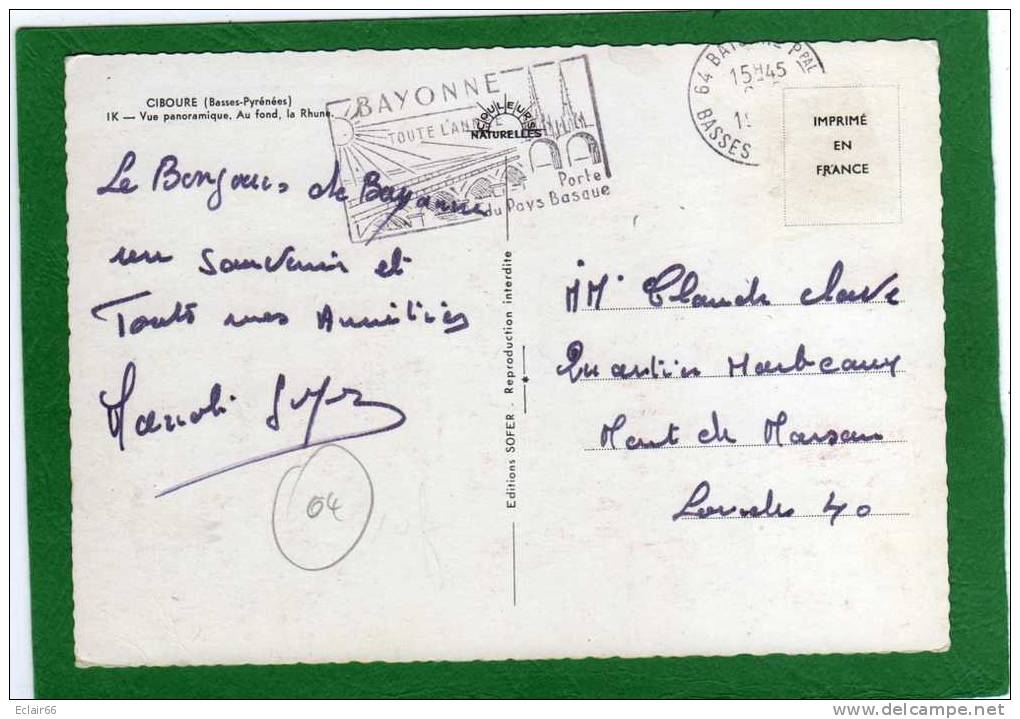 CIBOURE (Basses-Pyrénées)
IK — Vue panoramique. Au fond, la Rhune.
BAYONNE
TOUTE L'ANNÉE
COULEURS
NATURELLES
Porte
du Pays Basque
64 BAYONNE PPAL
15H45
BASSES
IMPRIMÉ
EN
FRANCE
Le Bonjour de Bayonne
un Souvenir et
Toute mes Amitiés
Editions SOFER . Reproduction interdite
MM Claude
Quartier
Mont de Marsan
Landes 40
04
Eclair66
www.delcampe.net